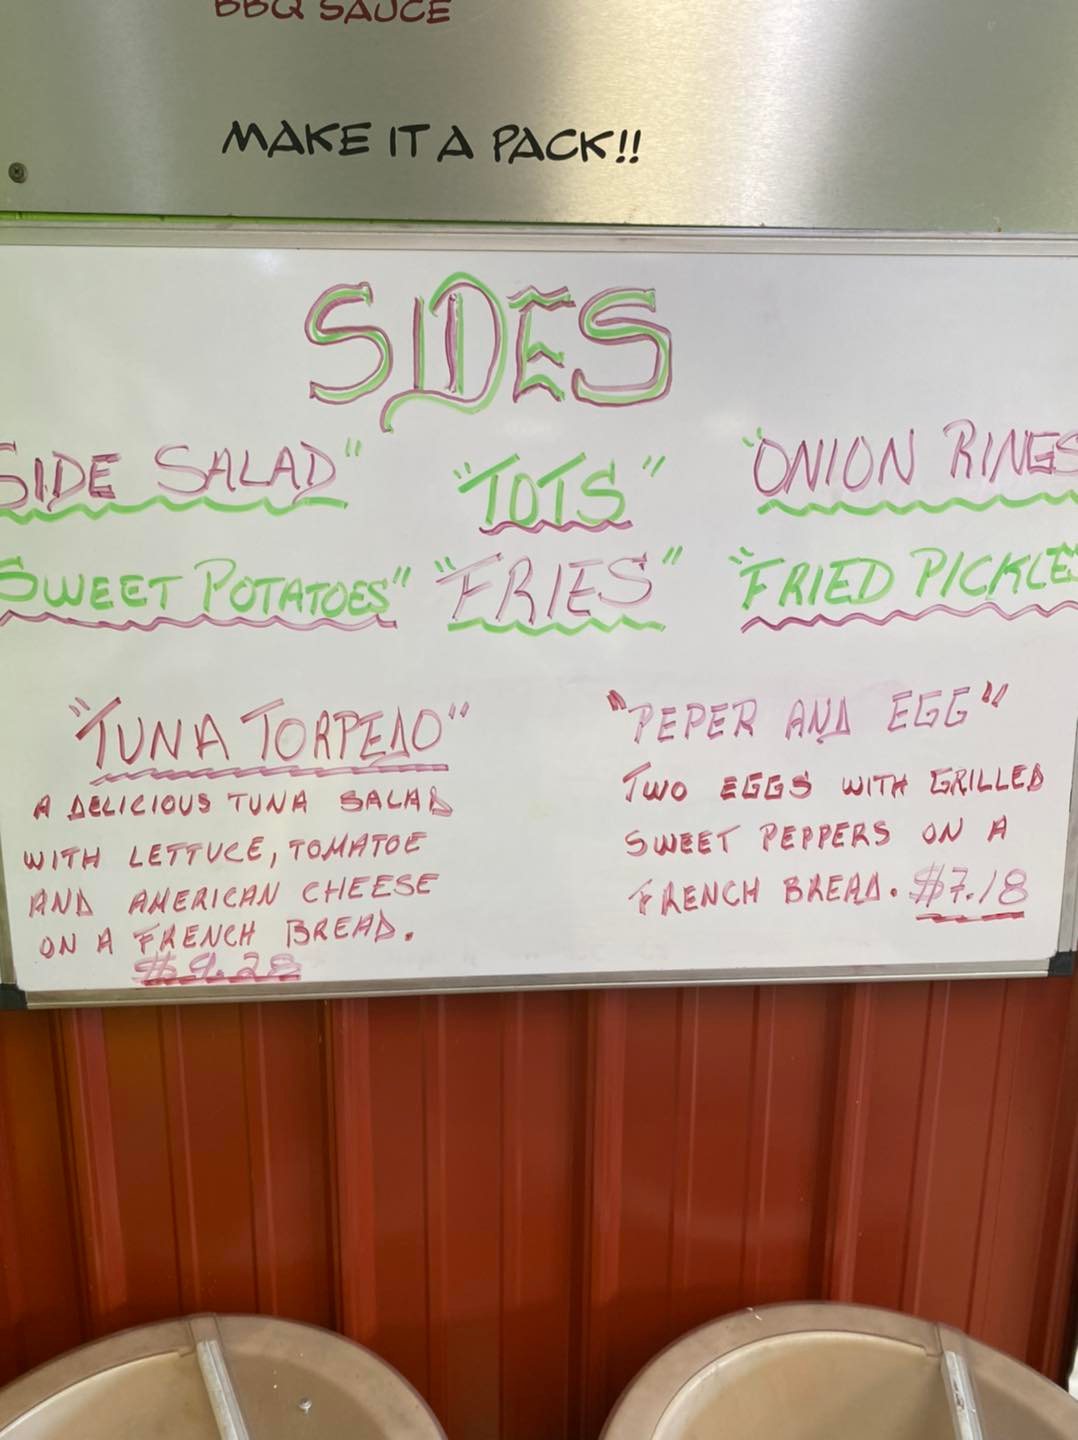 BBQ SAUCE
MAKE IT A PACK!!
SIDES
SIDE SALAD" "TOTS" "ONION RINGS
SWEET POTATOES" "FRIES" "FRIED PICKLE
"TUNA TORPEDO"
A DELICIOUS TUNA SALAD
WITH LETTUCE, TOMATOE
AND AMERICAN CHEESE
ON A FRENCH BREAD.
$9.28
"PEPER AND EGG"
TWO EGGS WITH GRILLED
SWEET PEPPERS ON A
FRENCH BREAD. $7.18